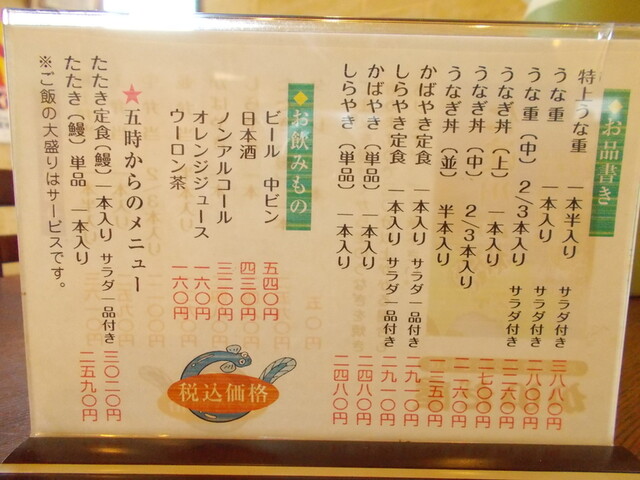 ◆お品書き
特上うな重 一本半入り サラダ付き 三八八〇円
うな重 一本入り サラダ付き 二八〇〇円
うな重(中) 2/3本入り サラダ付き 二一六〇円
うなぎ丼(上) 一本入り 二七〇〇円
うなぎ丼(中) 2/3本入り 二一六〇円
うなぎ丼(並) 半本入り 一二五〇円
かばやき定食 一本入り サラダ一品付き 二九一〇円
しらやき定食 一本入り サラダ一品付き 二九一〇円
かばやき(単品) 一本入り 二四八〇円
しらやき(単品) 一本入り 二四八〇円
◆お飲みもの
ビール 中ビン 五四〇円
日本酒 四三〇円
ノンアルコール 三二〇円
オレンジジュース 一六〇円
ウーロン茶 一六〇円
★五時からのメニュー
たたき定食(鰻) 一本入り サラダ一品付き 三〇二〇円
たたき(鰻)単品 一本入り 二五九〇円
※ご飯の大盛りはサービスです。
税込価格